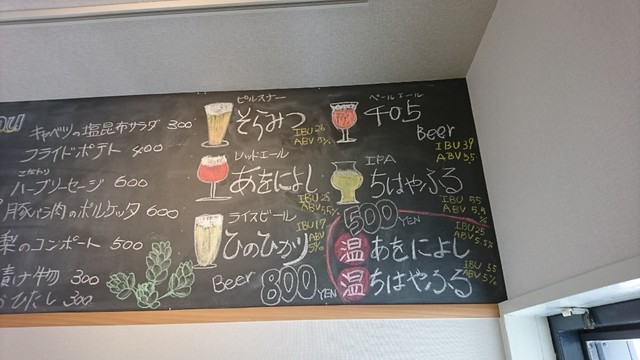 キャベツの塩昆布サラダ 300
フライドポテト 400
こだわり
ハーブソーセージ 600
豚バラ肉のポルケッタ 600
梨のコンポート 500
漬け物 300
ひたし 300
ピルスナー
そらみつ
IBU 26
ABV 5%
レッドエール
あをによし
IBU 25
ABV 5.5%
ライスビール
ひのひかり
IBU 17
ABV 5%
Beer 800 YEN
ペールエール
チロ5
Beer
IBU 39
ABV 5.5
IPA
ちはやふる
IBU 55
ABV 5.5%
500 YEN
温 あをによし
IBU 25
5.5%
温 ちはやふる
IBU 55
ABV 5.5%